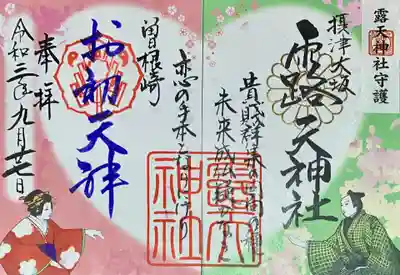 露天神社守護
摂津大坂
露天神社
貴賎群集の回向の種
未来成仏疑ひなき
恋の手本となりにけり
曽根崎
お初天神
奉拝
令和三年九月廿七日
露天神社